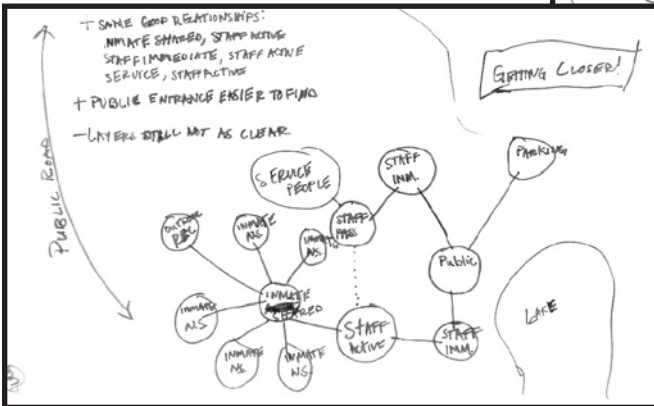 + SAME GOOD RELATIONSHIPS:
INMATE SHARED, STAFF ACTIVE
STAFF IMMEDIATE, STAFF ACTIVE
SERVICE, STAFF ACTIVE
+ PUBLIC ENTRANCE EASIER TO FIND
- LAYERS STILL NOT AS CLEAR
GETTING CLOSER!
PUBLIC ROAD
SERVICE
PEOPLE
STAFF
INM.
PARKING
OUTDOOR
REC
INMATE
N.S.
INMATE
N.S.
STAFF
PASS
Public
INMATE
N.S
INMATE
SHARED
STAFF
ACTIVE
STAFF
INM.
LAKE
INMATE
N.S.
INMATE
N.S.